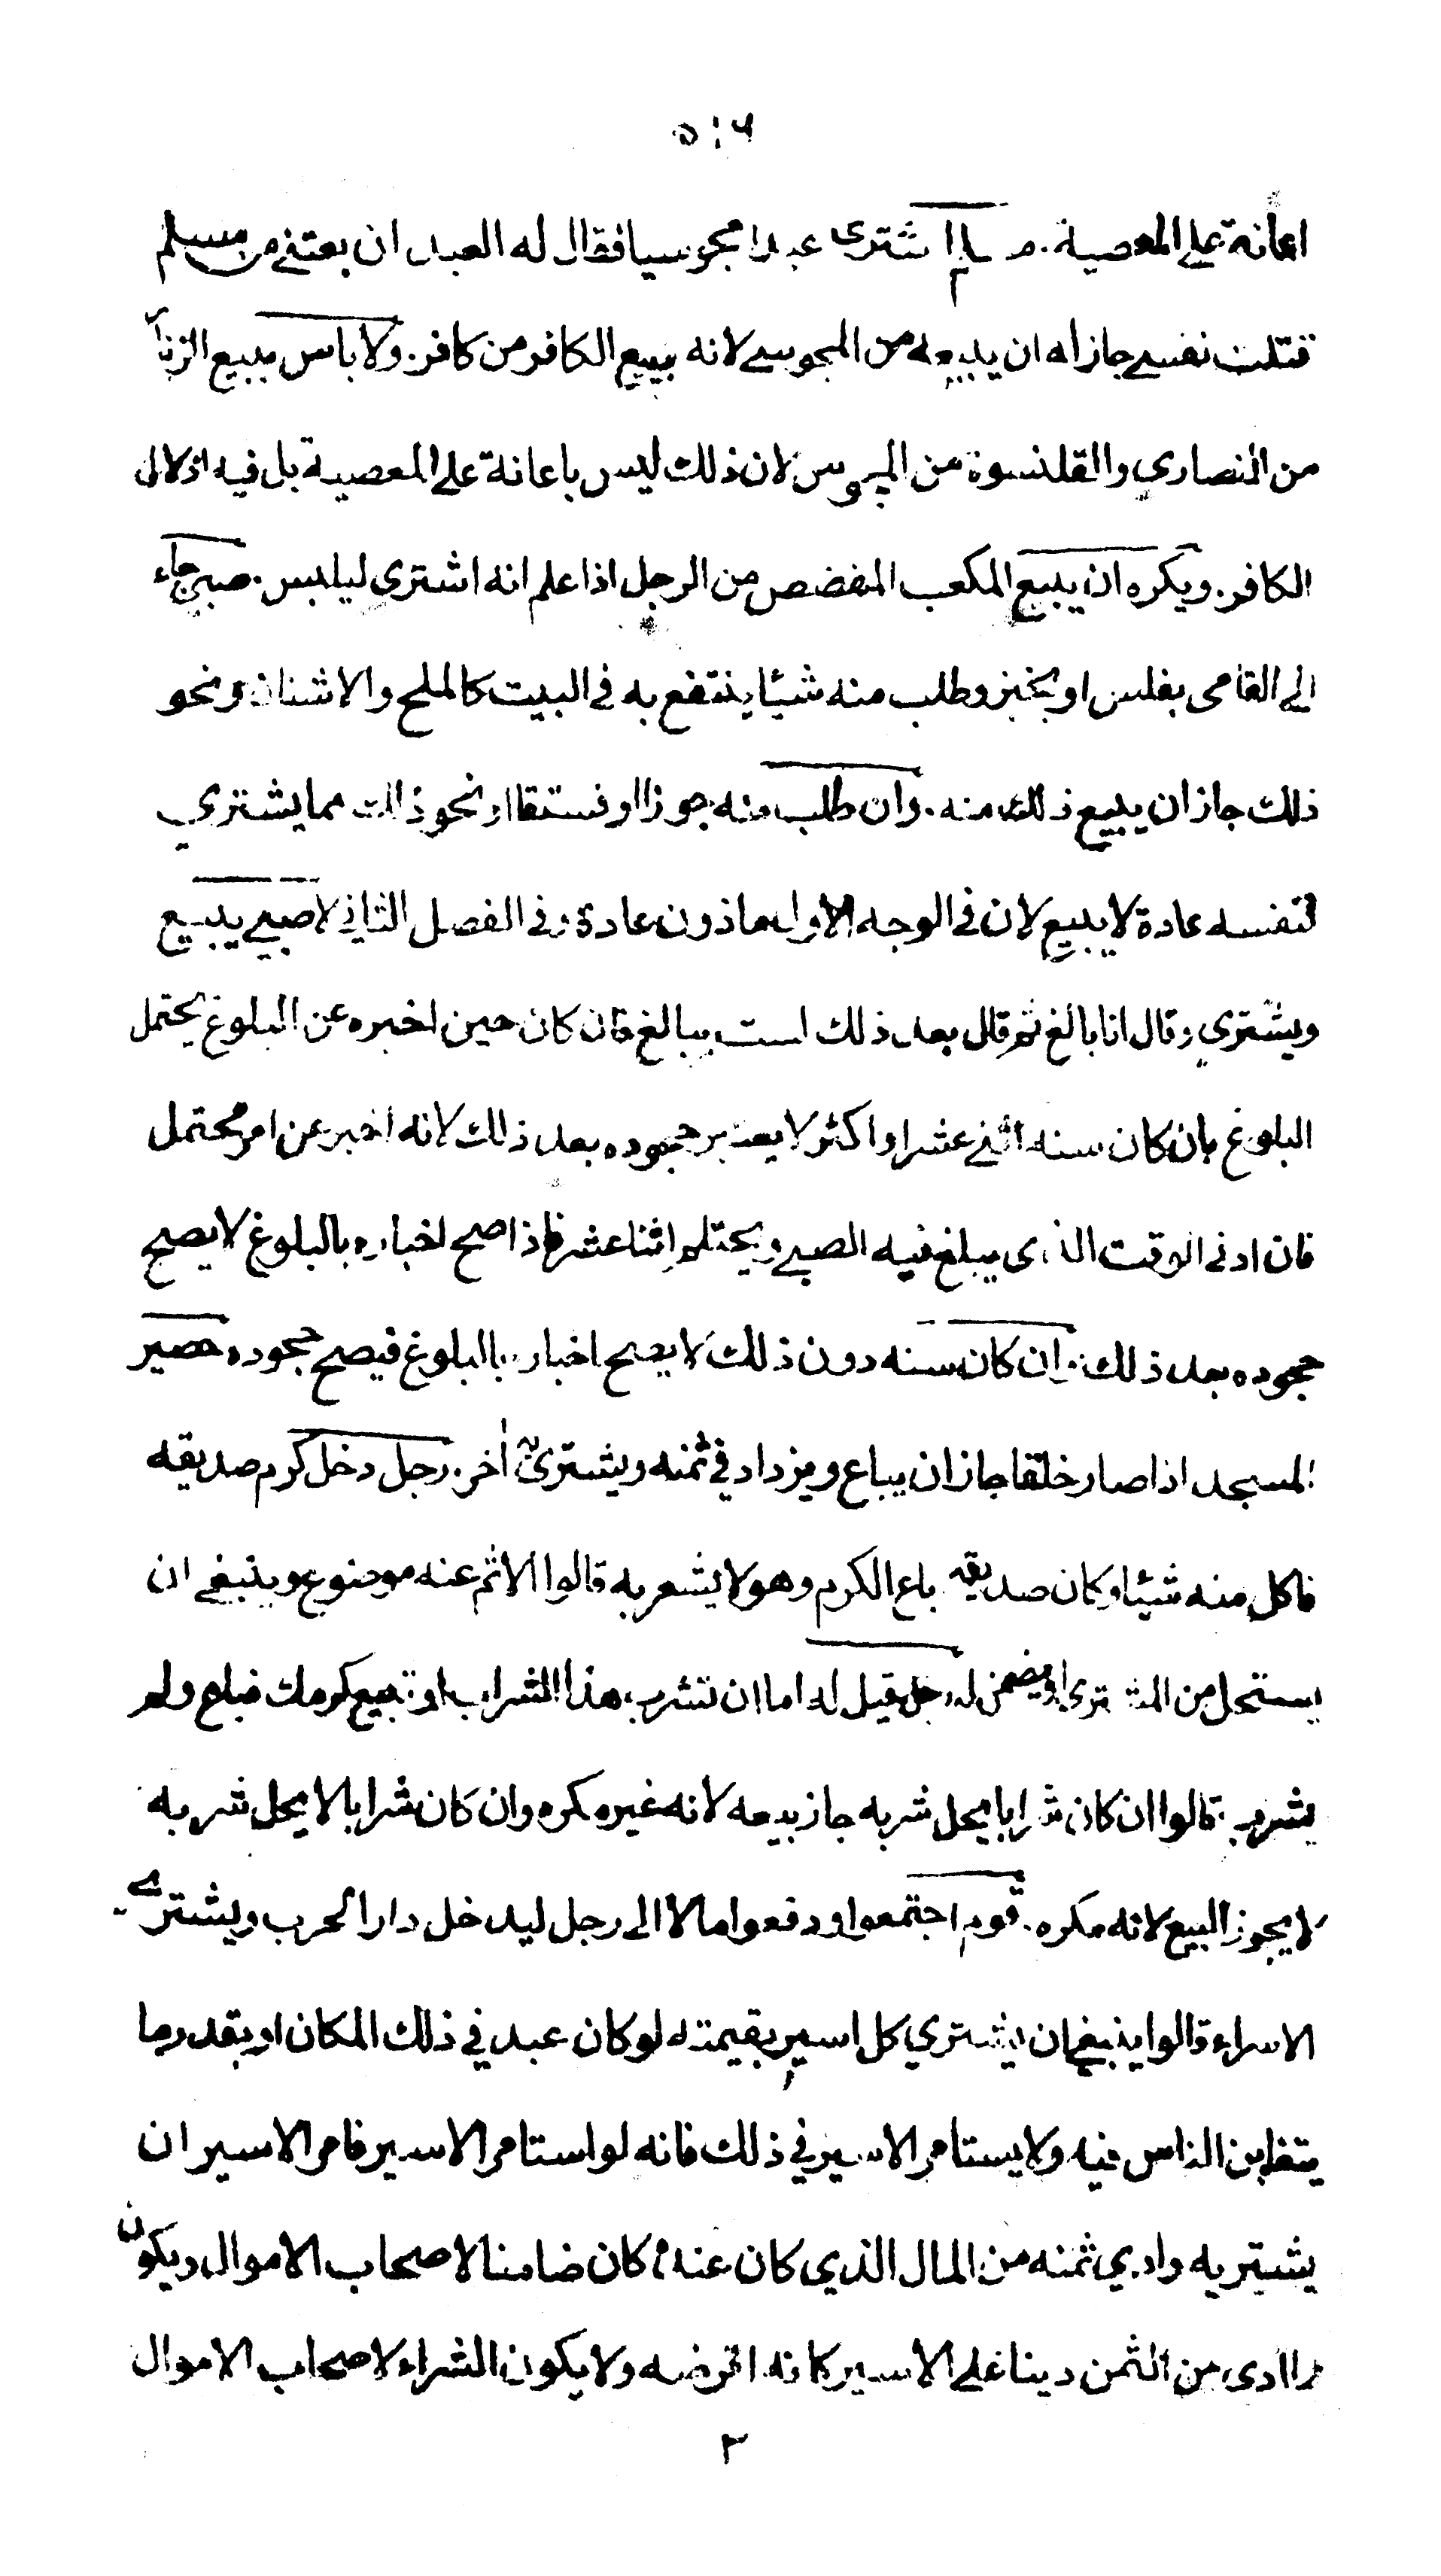 ٥١٦
اعانة على المعصية. مسلم اشترى عبدا مجوسيا فقال له العبد ان بعتني من مسلم
قتلت نفسي جاز له ان يبيعه من المجوسي لانه يبيع الكافر من كافر. ولا باس ببيع الزنا
من النصارى والقلنسوة من المجوس لان ذلك ليس باعانة على المعصية بل فيه اذلال
الكافر. ويكره ان يبيع المكعب المفضض من الرجل اذا علم انه اشترى ليلبس. صبي جاء
الى القامى بفلس او بخبز وطلب منه شيئا ينتفع به في البيت كالملح والاشنان ونحو
ذلك جاز ان يبيع ذلك منه. وان طلب منه جوزا او فستقا او نحو ذلك مما يشتري
لنفسه عادة لا يبيع لان في الوجه الاول ماذون عادة وفي الفصل الثاني لا صبي يبيع
ويشتري وقال انا بالغ ثم قال بعد ذلك لست ببالغ فان كان حين اخبره عن البلوغ يحتمل
البلوغ بان كان سنه اثنى عشر او اكثر لا يعتبر جحوده بعد ذلك لانه اخبر عن امر محتمل
فان ادنى الوقت الذى يبلغ فيه الصبي ويحتلم اثنا عشر فاذا صح اخباره بالبلوغ لا يصح
جحوده بعد ذلك. وان كان سنه دون ذلك لا يصح اخباره بالبلوغ فيصح جحوده حصير
المسجد اذا صار خلقا جاز ان يباع ويزداد في ثمنه ويشترى آخر. رجل دخل كرم صديقه
فاكل منه شيئا وكان صديقه باع الكرم وهو لا يشعر به قالوا الاثم عنه موضوع وينبغي ان
يستحل من المشترى او يضمن له رجل قيل له اما ان تشرب هذا الشراب او تبيع كرمك فباع ولم
يشرب قالوا ان كان شرابا يحل شربه جاز بيعه لانه غير مكره وان كان شرابا لا يحل شربه
لا يجوز البيع لانه مكره. قوم اجتمعوا ودفعوا مالا الى رجل ليدخل دار الحرب ويشترى
الاسراء قالوا ينبغي ان يشتري كل اسير بقيمته لو كان عبد في ذلك المكان او بقدر ما
يتغابن الناس فيه ولا يستامر الاسير في ذلك فانه لو استامر الاسير فامر الاسير ان
يشتريه وادي ثمنه من المال الذي كان عنده كان ضامنا لاصحاب الاموال ويكون
ما ادى من الثمن دينا على الاسير كانه اقرضه ولا يكون الشراء لاصحاب الاموال